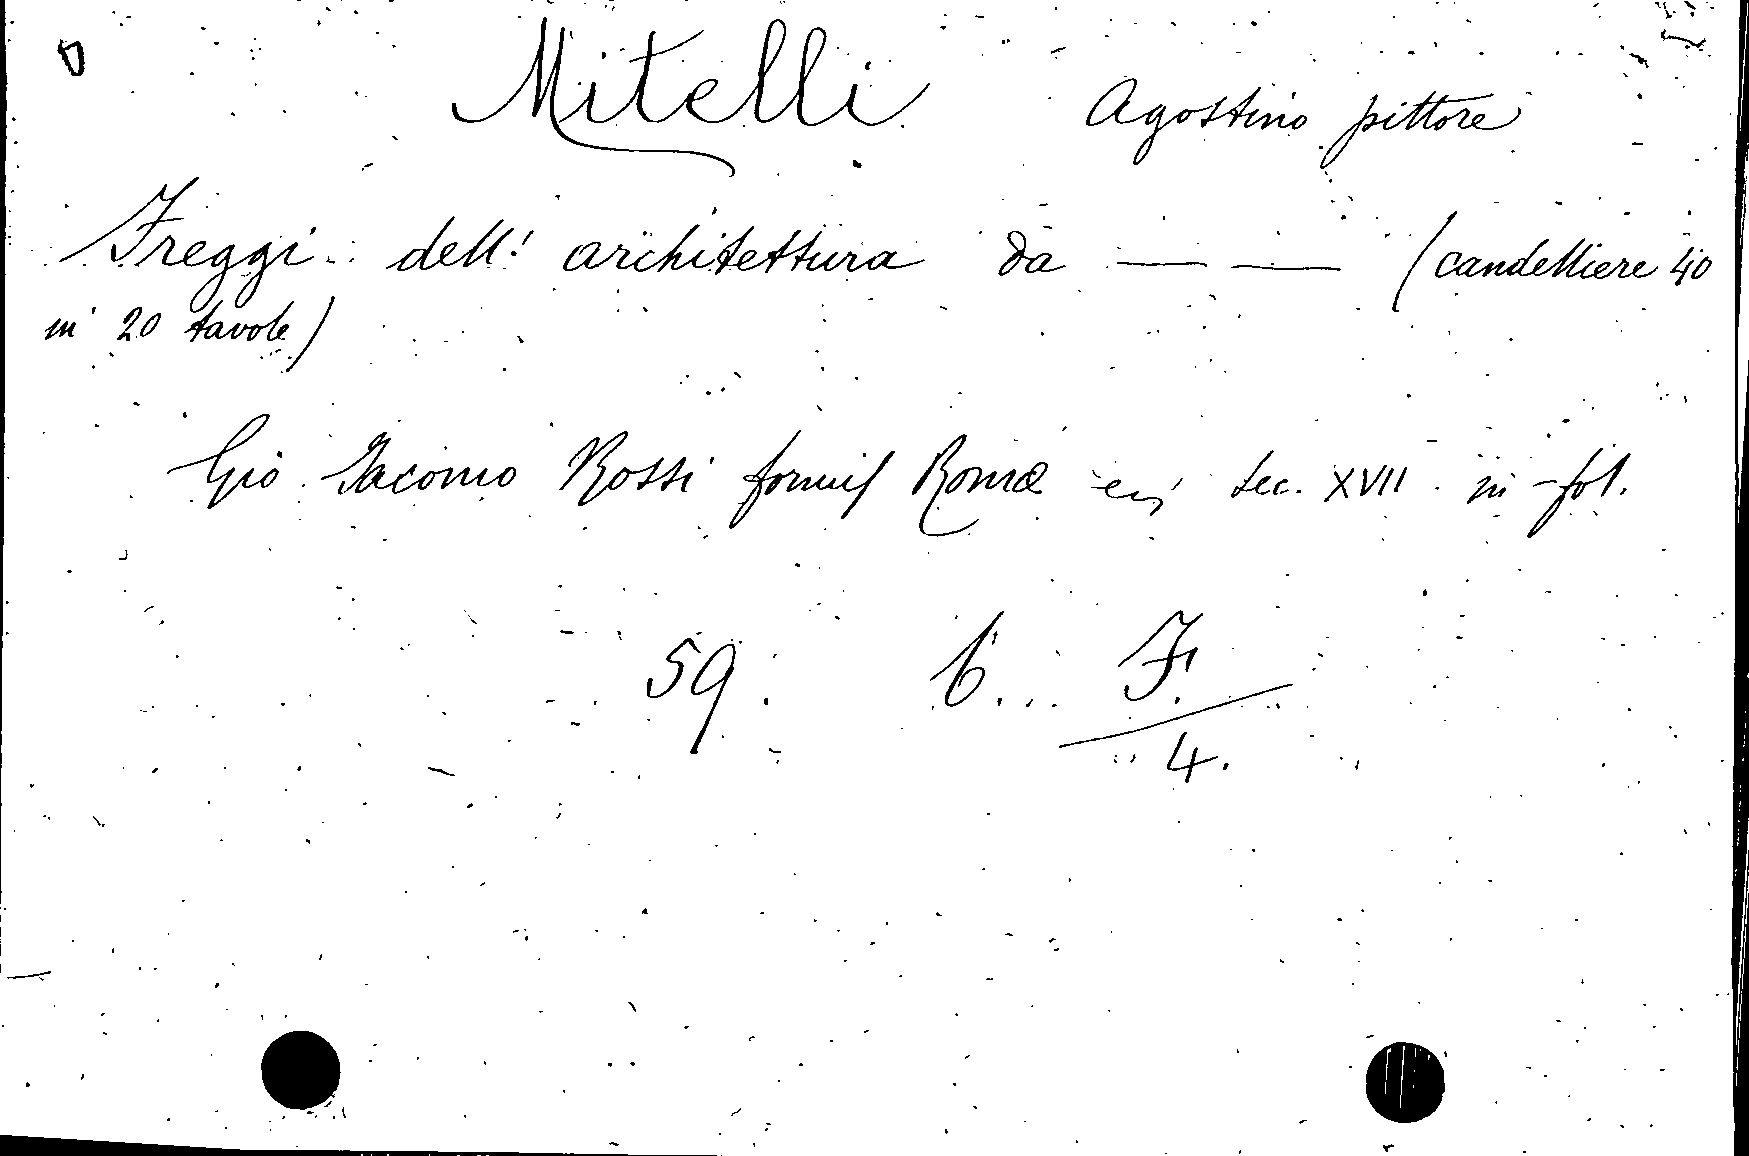 Mitelli Agostino pittore
Freggi dell' architettura da — — (candelliere 40
in 20 tavole)
Gio Iacomo Rossi formis Romæ sec. XVII in-fol.
59. b. F.
4.